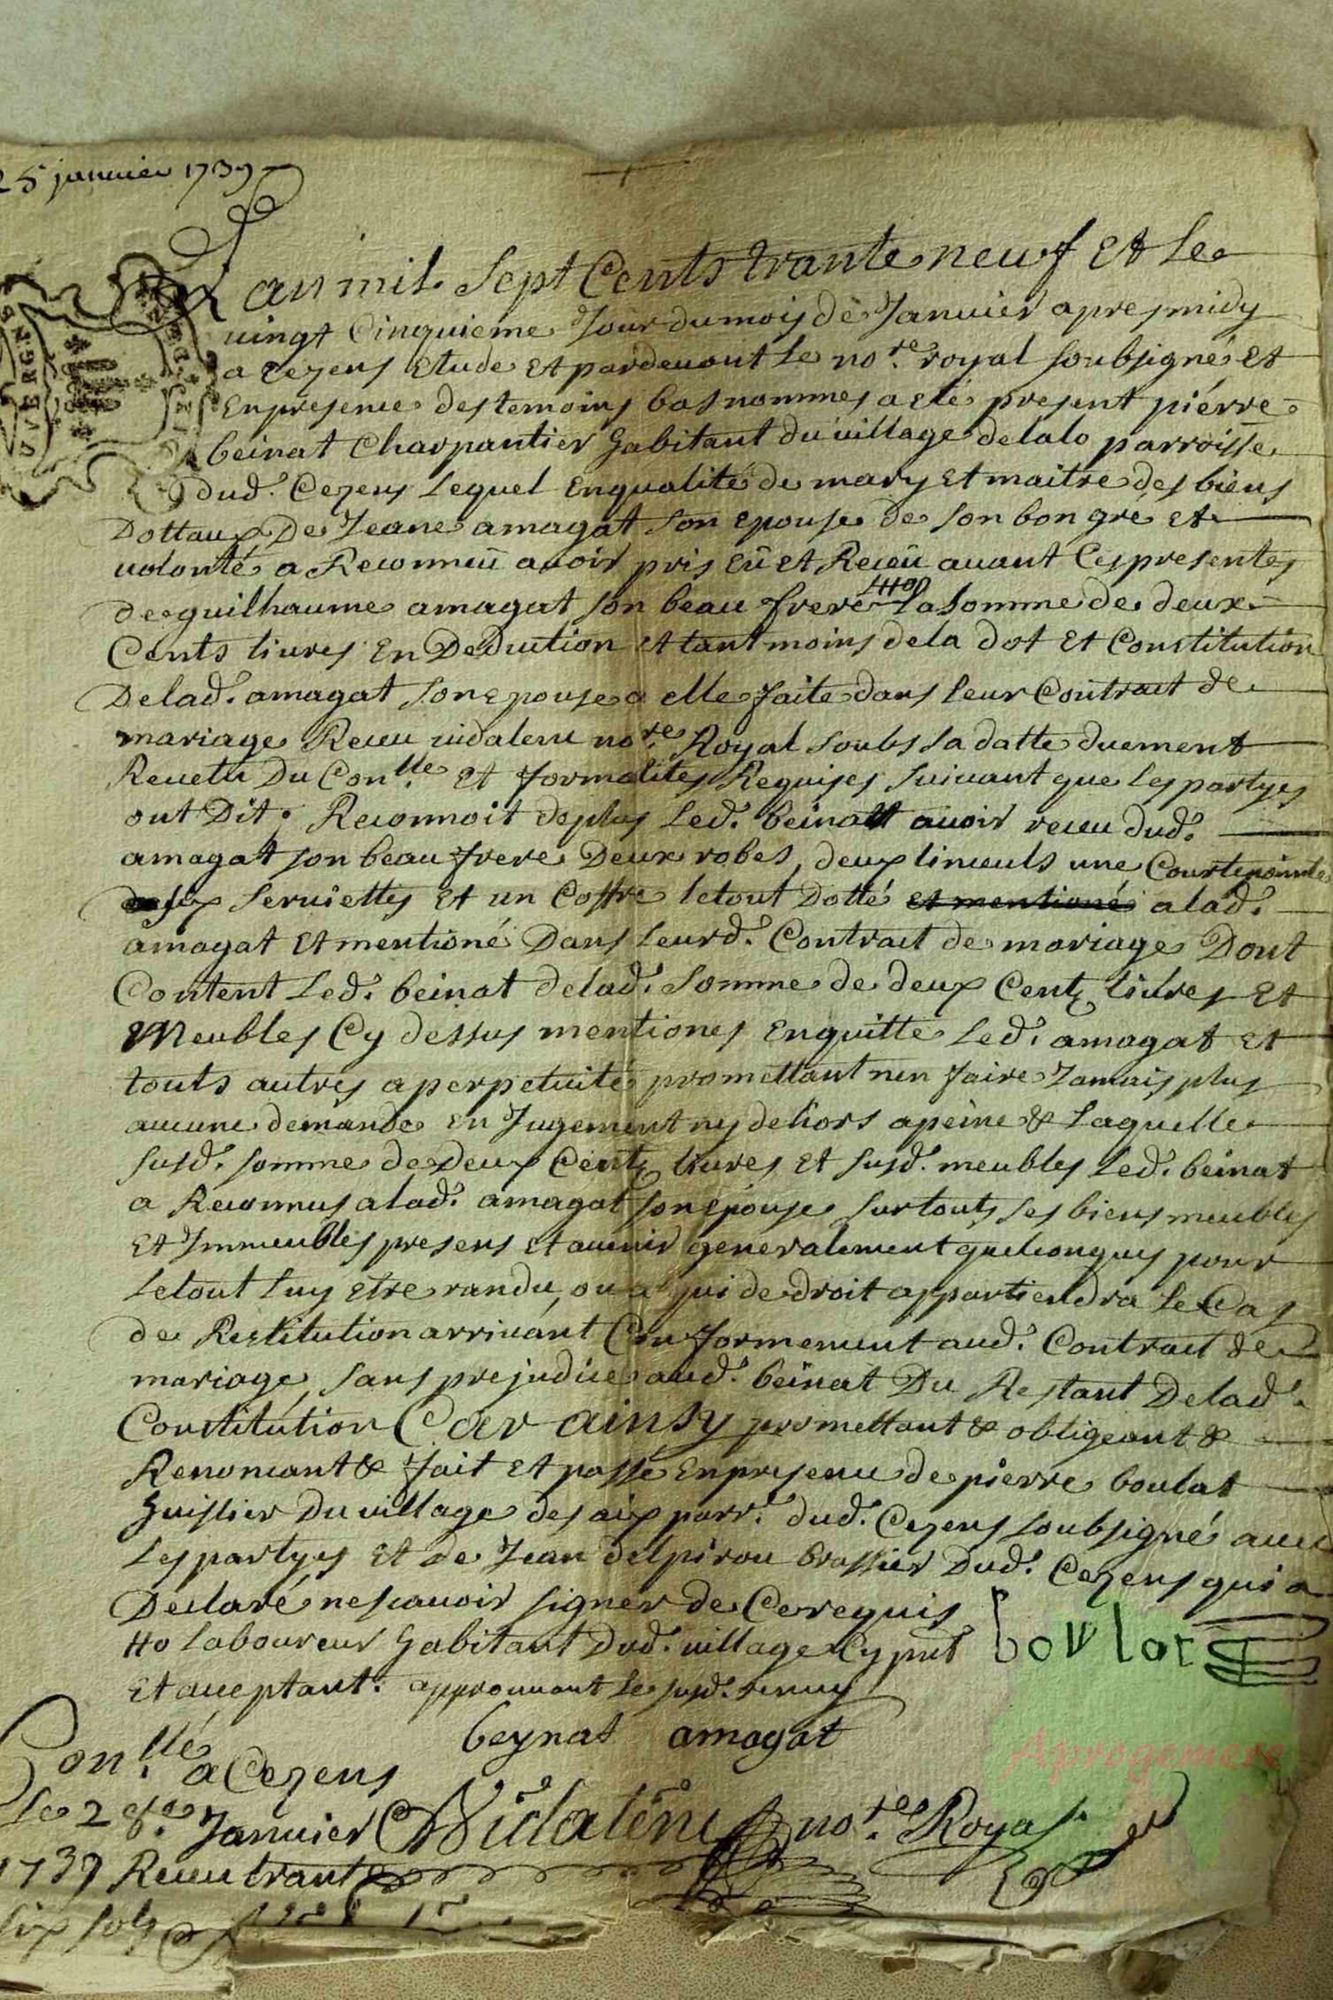 25 janvier 1739
L'an mil sept Cents trante neuf Et le
vingt Cinquieme Jour du mois de Janvier apres midy
a Cezens Etude Et pardevant le no.re royal soubsigné Et
En presence des temoins bas nommes a eté present piérre
beinat Charpantier habitant du village de lalo parroisse
dud. Cezens Lequel En qualité de mary Et maitre des biens
Dottaux De Jeane amagat son epouse de son bon gré et
volonté a Reconnu avoir pris Eü et Receü avant Ces presentes
de guilhaume amagat son beau frere la somme de deux
Cents livres En Deduction et tant moins de la dot Et Constitution
De lad. amagat son epouse a elle faite dans leur Contract de
mariage Receu vidalenc no.re Royal soubs sa datte duement
Revetu Du Con.lle Et formalites Requises suivant que les partyes
ont Dit. Reconnoit de plus Led. beinat avoir receu dud.
amagat son beau frere Deux robes, deux linceuls une Courtepointe
six serviettes Et un Coffre le tout Dotté et mentioné a lad.
amagat Et mentioné Dans leurd. Contract de mariage Dont
Content Led. beinat de lad. somme de deux Cents livres Et
Meubles Cy dessus mentiones En quitte Led. amagat et
touts autres a perpetuité promettant nen faire Jamais plus
aucune demande En Jugement ny dehors a peine & Laquelle
susd. somme de deux Cents livres Et susd. meubles Led. beinat
a Reconnus a lad. amagat son epouse sur touts ses biens meubles
Et Immeubles presens Et avenir generalement quelconques pour
Le tout luy etre randu, ou a qui de droit appartiendra le Cas
de Restitution arrivant Conformement aud. Contract de
mariage, sans prejudice aud. beinat Du Restant De lad.
Constitution Car ainsy promettant & obligeant &
Renoncant & fait Et passé En presence de pierre boulat
huissier Du village des aix parr. dud. Cezens soubsigné avec
Les partyes Et de Jean delpirou brassier Dud. Cezens qui a
Declaré ne scavoir signer de Ce requis
laboureur habitant Dud. village Cy pnt
Et acceptant. approuvant le susd.
boulat
beynat amagat
Con.llé a Cezens
Le 2 Janvier Vidalenc no.re Royal
1739 Receu trante
six sols
Aprogemere